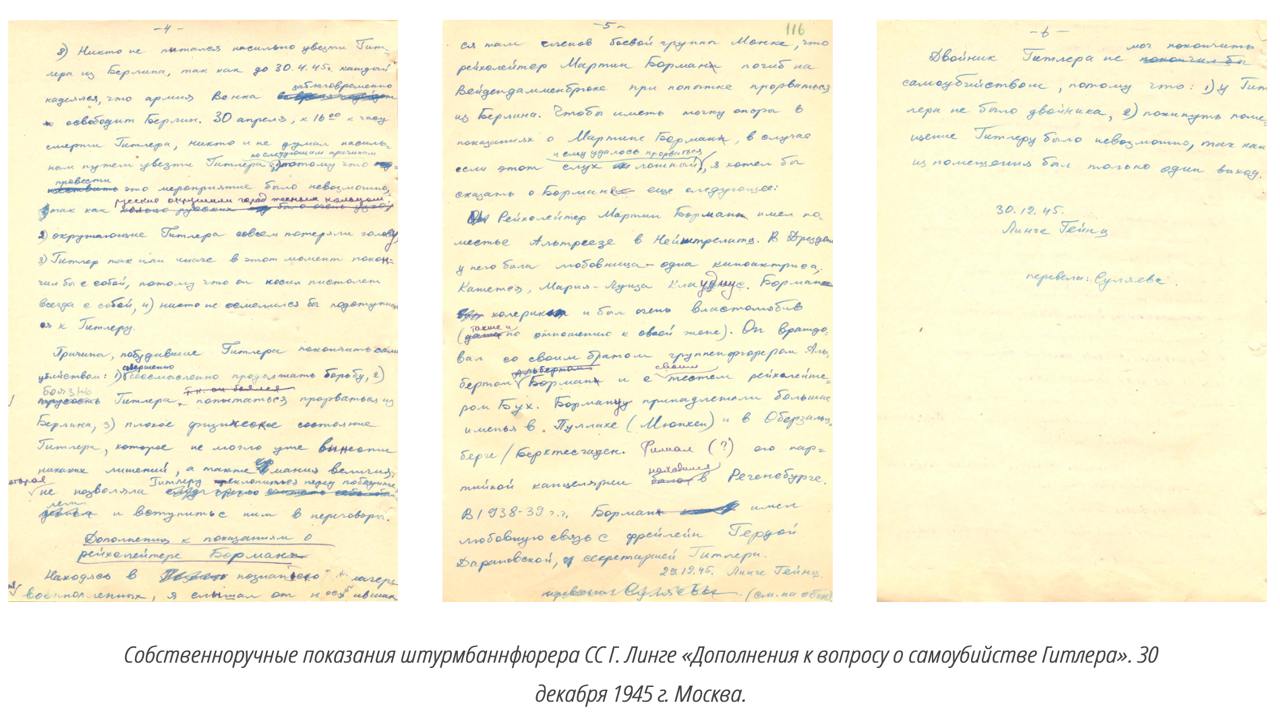 -4-
8) Никто не пытался насильно увезти Гит-
лера из Берлина, так как до 30.4.45г. каждый
заблаговременно
надеялся, что армия Венка
освободит Берлин. 30 апреля, к 16⁰⁰ к часу
смерти Гитлера, никто и не думал насиль-
ным путем увезти Гитлера, потому что
по следующим причинам
провести
это мероприятие было невозможно,
русские окружили город тесным кольцом,
так как
2) окружающие Гитлера совсем потеряли голову
3) Гитлер так или иначе в этот момент покон-
чил бы с собой, потому что он носил пистолет
всегда с собой, 4) никто не осмелился бы подступить-
ся к Гитлеру.
Причина, побудившие Гитлера покончить само
совершенно
убийством: 1) бессмысленно продолжать борьбу, 2)
боязнь т.к. он боялся
трусость Гитлера попытаться прорваться из
Берлина, 3) плохое физическое состояние
Гитлера, которое не могло уже вынести
никаких лишений, а также мания величия,
которая Гитлеру преклониться перед победите-
не позволяла
лем
и вступить с ним в переговоры.
Дополнения к показаниям о
рейхслейтере Борман
Находясь в познанском лагере
военнопленных, я слышал от находившихся
-5-
116
ся там членов боевой группы Монке, что
рейхслейтер Мартин Борман погиб на
Вейдендаммербрюке при попытке прорваться
из Берлина. Чтобы иметь точку опоры в
показаниях о Мартине Борман, в случае
и ему удалось прорваться
если этот слух ложный, я хотел бы
сказать о Борман еще следующее:
Рейхслейтер Мартин Борман имел по
местье Альтреезе в Нейштрелитц. В Дрездене
у него была любовница - одна киноактриса,
Кажется, Мария-Луиза Клаудиус. Борман
холерик и был очень властолюбив
также и
(даже по отношению к своей жене). Он враждо-
вал со своим братом группенфюрером Аль-
Альбертом своим
бертом Борман и с тестем рейхслейте-
ром Бух. Борману принадлежали большие
именья в Пуллахе (Мюнхен) и в Оберзальц-
берге / Берхтесгаден. Филиал (?) его пар-
находился
тийной канцелярии был в Регенсбурге.
В 1938-39 г.г. Борман имел
любовную связь с фрейлейн Гердой
Дарановской, секретаршей Гитлера.
29.12.45. Линге Гейнц
перевела: Суляева (см. на обор)
-6-
мог покончить
Двойник Гитлера не покончил бы
самоубийством, потому что: 1) у Гит
лера не было двойника, 2) покинуть поме-
щение Гитлеру было невозможно, так как
из помещения был только один выход.
30.12.45.
Линге Гейнц
перевела: Суляева.
Собственноручные показания штурмбаннфюрера СС Г. Линге «Дополнения к вопросу о самоубийстве Гитлера». 30
декабря 1945 г. Москва.